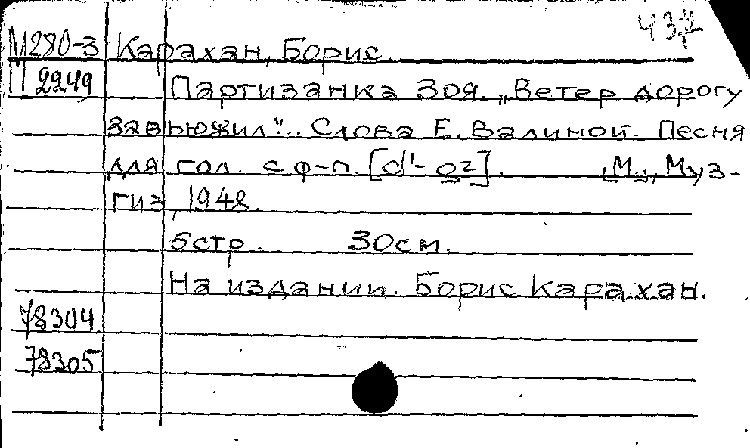 М280-3 Карахан, Борис.
М 2249 Партизанка Зоя. „Ветер дорогу
завьюжил“.. Слова Е. Валиной. Песня
для гол. с ф-п. [d¹- g2]. [М.], Муз-
гиз, 1948.
5стр. 30см.
На издании. Борис Карахан.
78304
78305